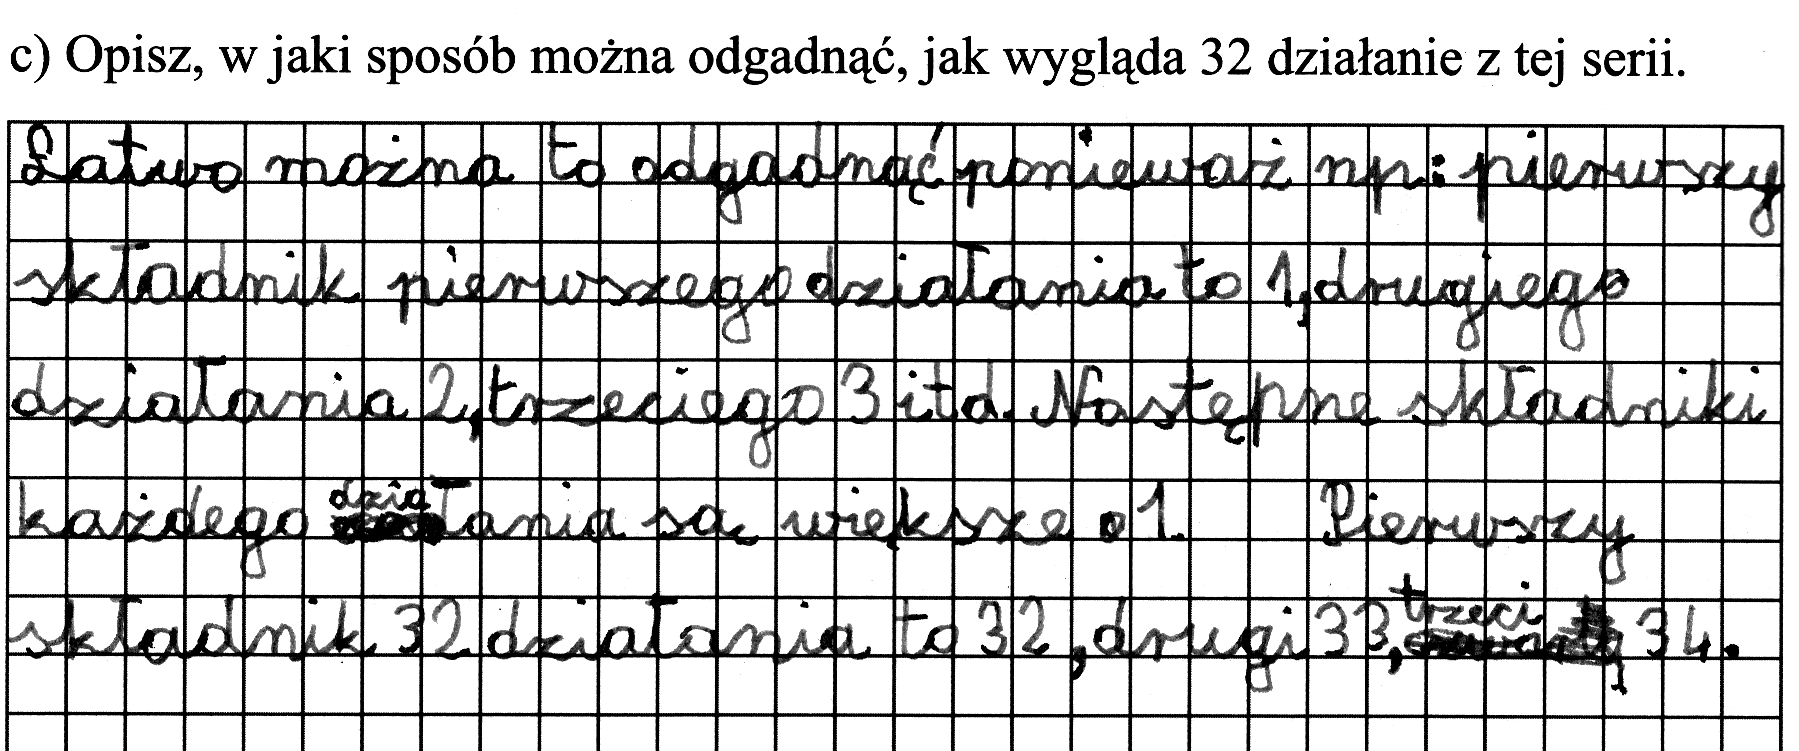 c) Opisz, w jaki sposób można odgadnąć, jak wygląda 32 działanie z tej serii.
Łatwo można to odgadnąć ponieważ np: pierwszy
składnik pierwszego działania to 1, drugiego
działania 2, trzeciego 3 itd. Następne składniki
każdego działania są większe o 1. Pierwszy
składnik 32 działania to 32, drugi 33, trzeci 34.